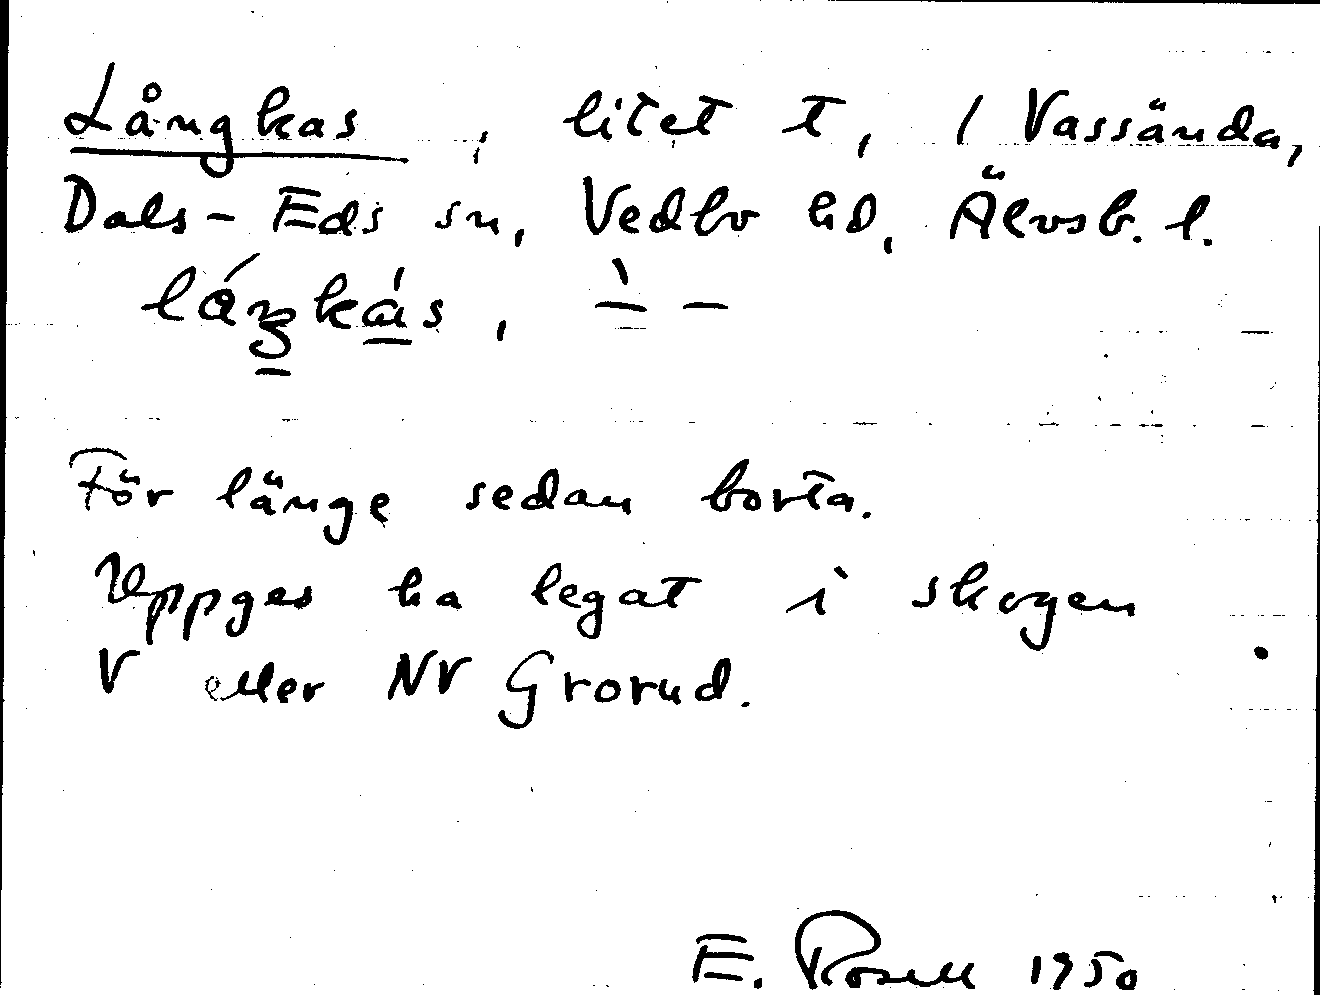 Långkas, litet t, / Vassända,
Dals-Eds sn, Vedbo hd, Älvsb. l.
För länge sedan borta.
Uppges ha legat i skogen
V eller NV Grorud.
E. Rosell 1950